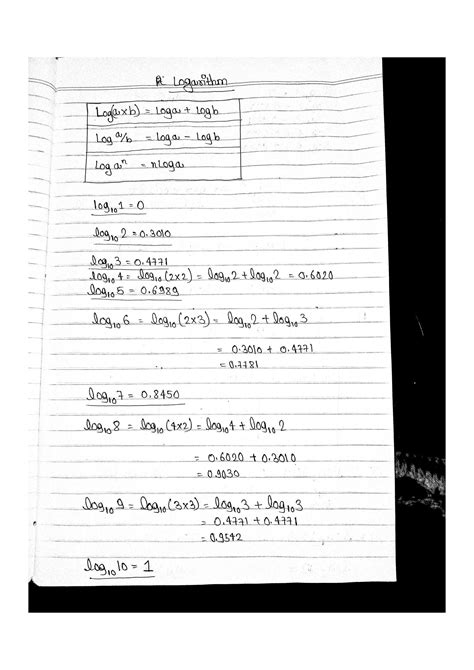 Logarithm
Log(a×b) = Loga + Logb
Log a/b = Loga - Logb
Log aⁿ = nLoga
log₁₀1 = 0
log₁₀2 = 0.3010
log₁₀3 = 0.4771
log₁₀4 = log₁₀(2×2) = log₁₀2 + log₁₀2 = 0.6020
log₁₀5 = 0.6989
log₁₀6 = log₁₀(2×3) = log₁₀2 + log₁₀3
= 0.3010 + 0.4771
= 0.7781
log₁₀7 = 0.8450
log₁₀8 = log₁₀(4×2) = log₁₀4 + log₁₀2
= 0.6020 + 0.3010
= 0.9030
log₁₀9 = log₁₀(3×3) = log₁₀3 + log₁₀3
= 0.4771 + 0.4771
= 0.9542
log₁₀10 = 1